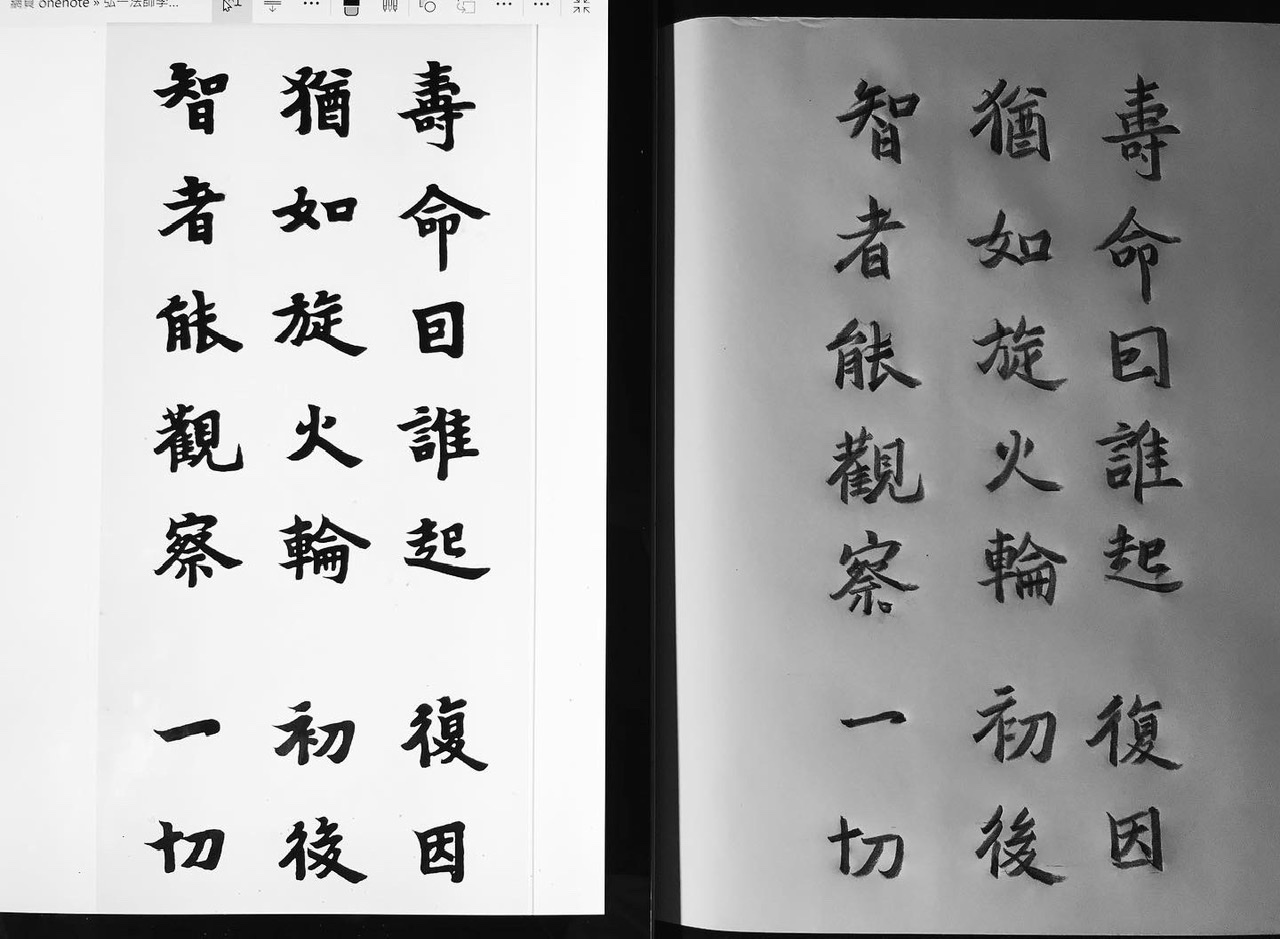 網頁 onenote » 弘一法師
壽命囙誰起 復因
猶如旋火輪 初後
智者能觀察 一切
壽命囙誰起 復因
猶如旋火輪 初後
智者能觀察 一切